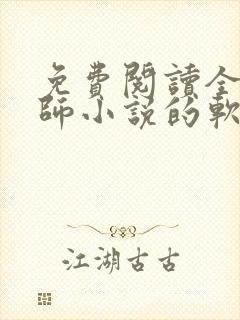 免費閱讀全
師小說的軟
江湖古古